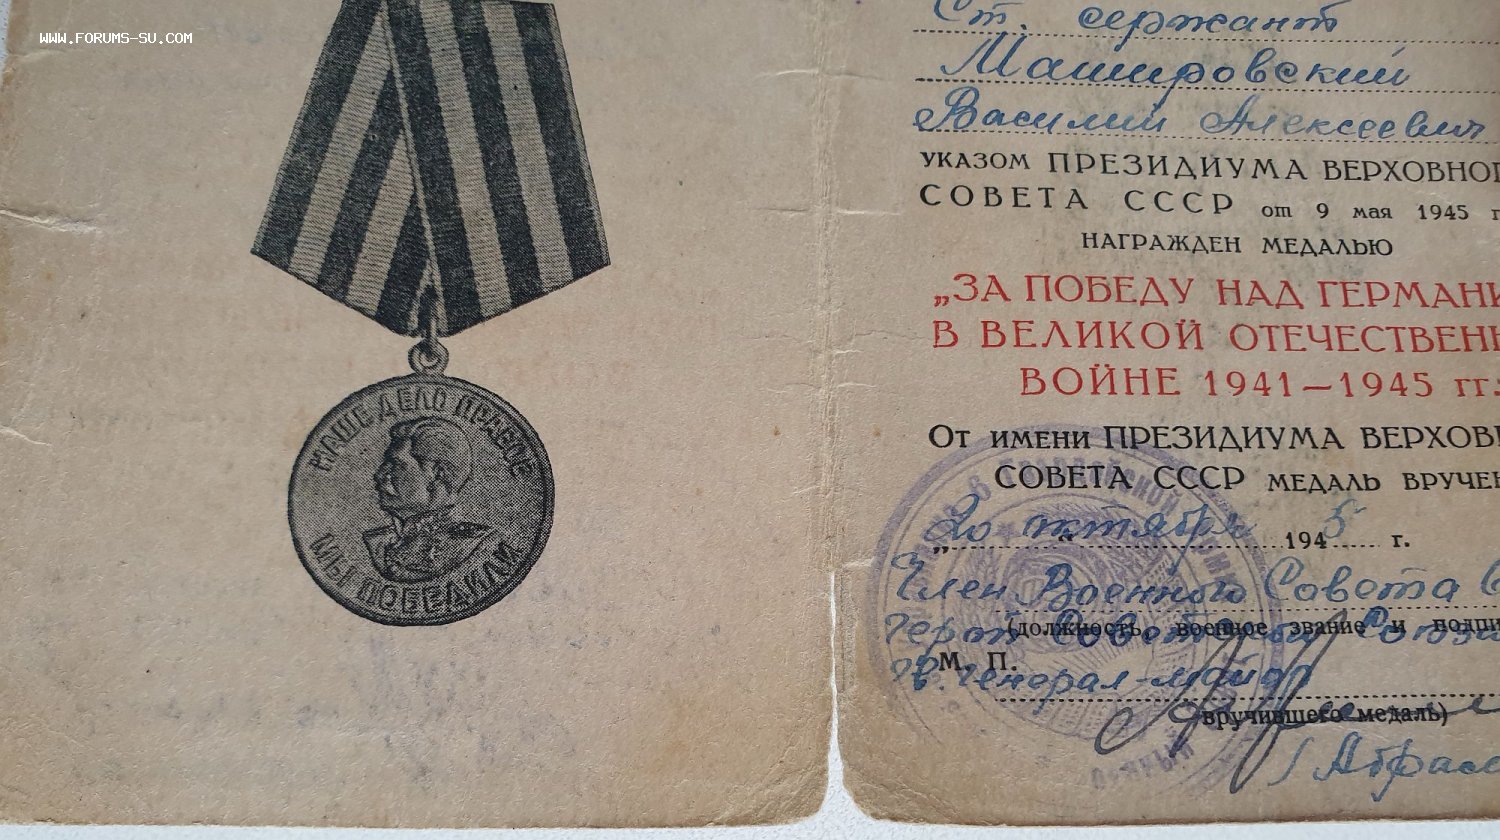 WWW.FORUMS-SU.COM
НАШЕ ДЕЛО ПРАВОЕ
МЫ ПОБЕДИЛИ
Ст. сержант
Машировский
Василий Алексеевич
УКАЗОМ ПРЕЗИДИУМА ВЕРХОВНОГ
СОВЕТА СССР от 9 мая 1945 г
НАГРАЖДЕН МЕДАЛЬЮ
„ЗА ПОБЕДУ НАД ГЕРМАНИ
В ВЕЛИКОЙ ОТЕЧЕСТВЕНН
ВОЙНЕ 1941—1945 гг.
От имени ПРЕЗИДИУМА ВЕРХОВН
СОВЕТА СССР МЕДАЛЬ ВРУЧЕН
„20“ октября 1945 г.
Член Военного Совета
(должность, военное звание и подпи
Герой Советского Союза
М. П.
гв. генерал-майор
вручившего медаль)